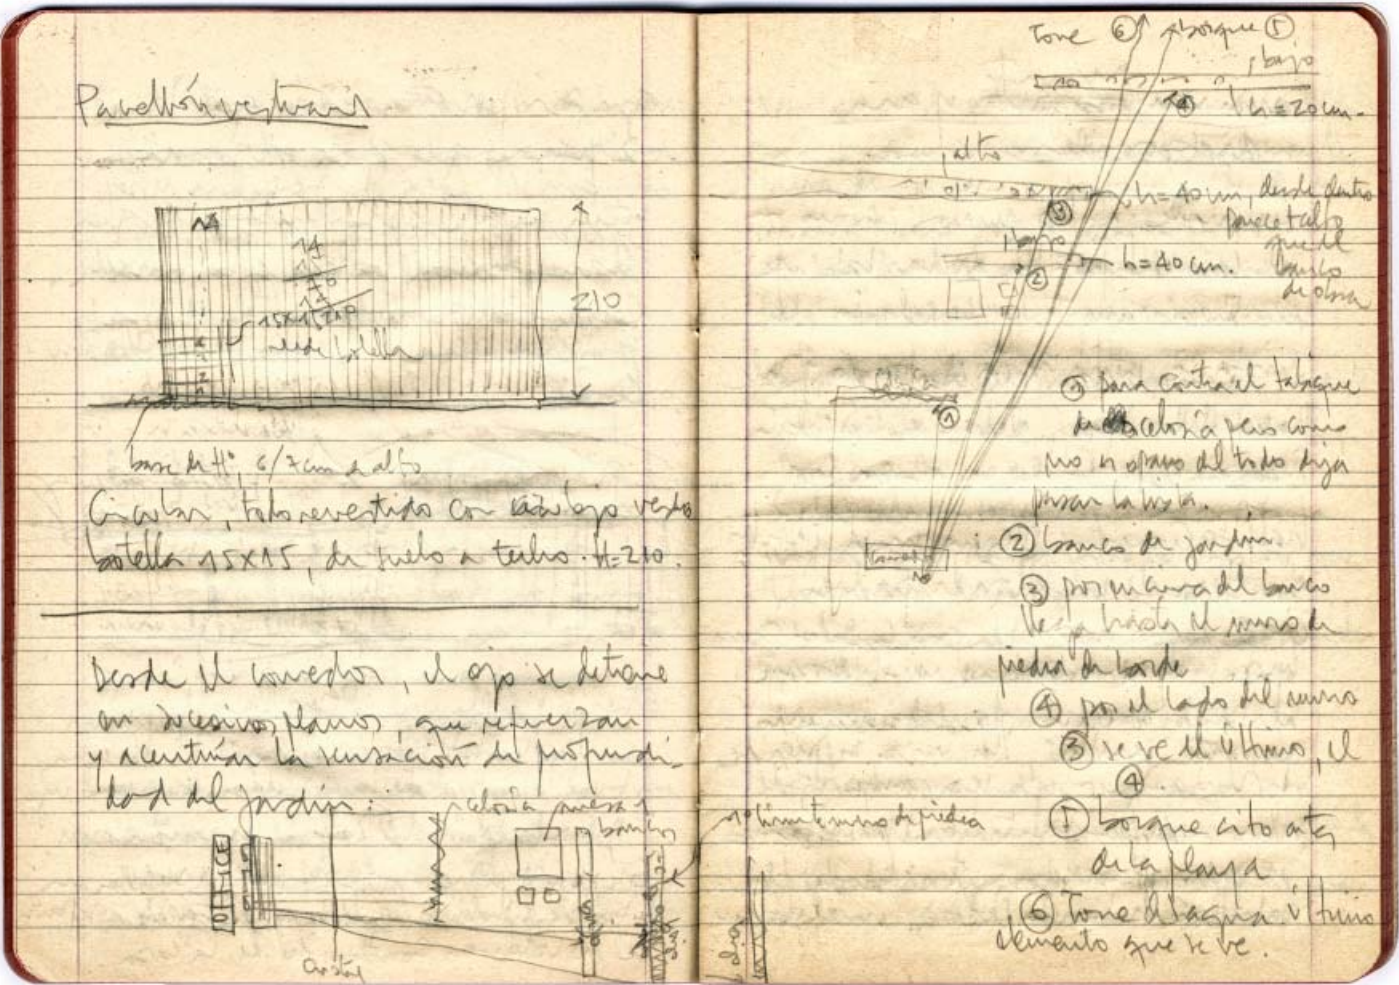 Pavellón vestuario
14
14
210
15x15
verde botella
base de Hº, 6/7cm de alto
Circular, todo revestido con azulejo verde
botella 15x15, de suelo a techo. H=210.
Desde el comedor, el ojo se detiene
en sucesivos planos, que refuerzan
y acentúan la sensación de profundi-
dad del jardín:
celosía
mesa
bancos
OFFICE
cristal
1º límite muro de piedra
Torre 6
bosque 5
bajo
4
h=20cm.
alto
h=40cm, desde dentro
parece + alto
que el
banco
de obra
3
bajo
h=40cm.
2
1
1 para contra el tabique
de celosía pero como
no es opaco del todo deja
pasar la vista.
2 banco de jardín.
3 por encima del banco
llega hasta el muro de
piedra de borde
4 por el lado del muro
3 se ve el último, el
4
5 bosque cito antes
de la playa
6 Torre de agua último
elemento que se ve.